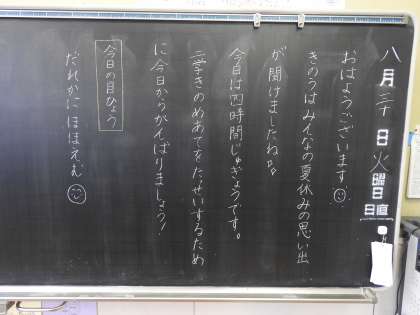 八月三十日火曜日
日直
おはようございます☺
きのうはみんなの夏休みの思い出
が聞けましたね♫。
今日は四時間じゅぎょうです。
二学きのめあてをたっせいするため
に今日からがんばりましょう！
今日の目ひょう
だれかにほほえむ☺